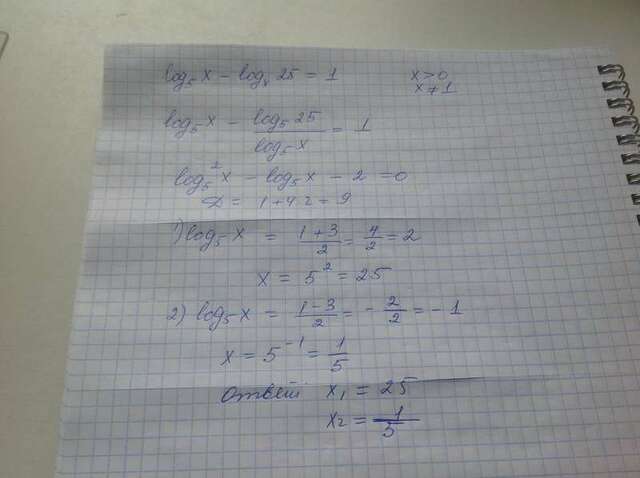 log₅x − logₓ25 = 1 x>0
x≠1
log₅x − log₅25/log₅x = 1
log₅²x − log₅x − 2 = 0
D = 1+4·2 = 9
1) log₅x = (1+3)/2 = 4/2 = 2
x = 5² = 25
2) log₅x = (1−3)/2 = −2/2 = −1
x = 5⁻¹ = 1/5
Ответ: x₁ = 25
x₂ = 1/5